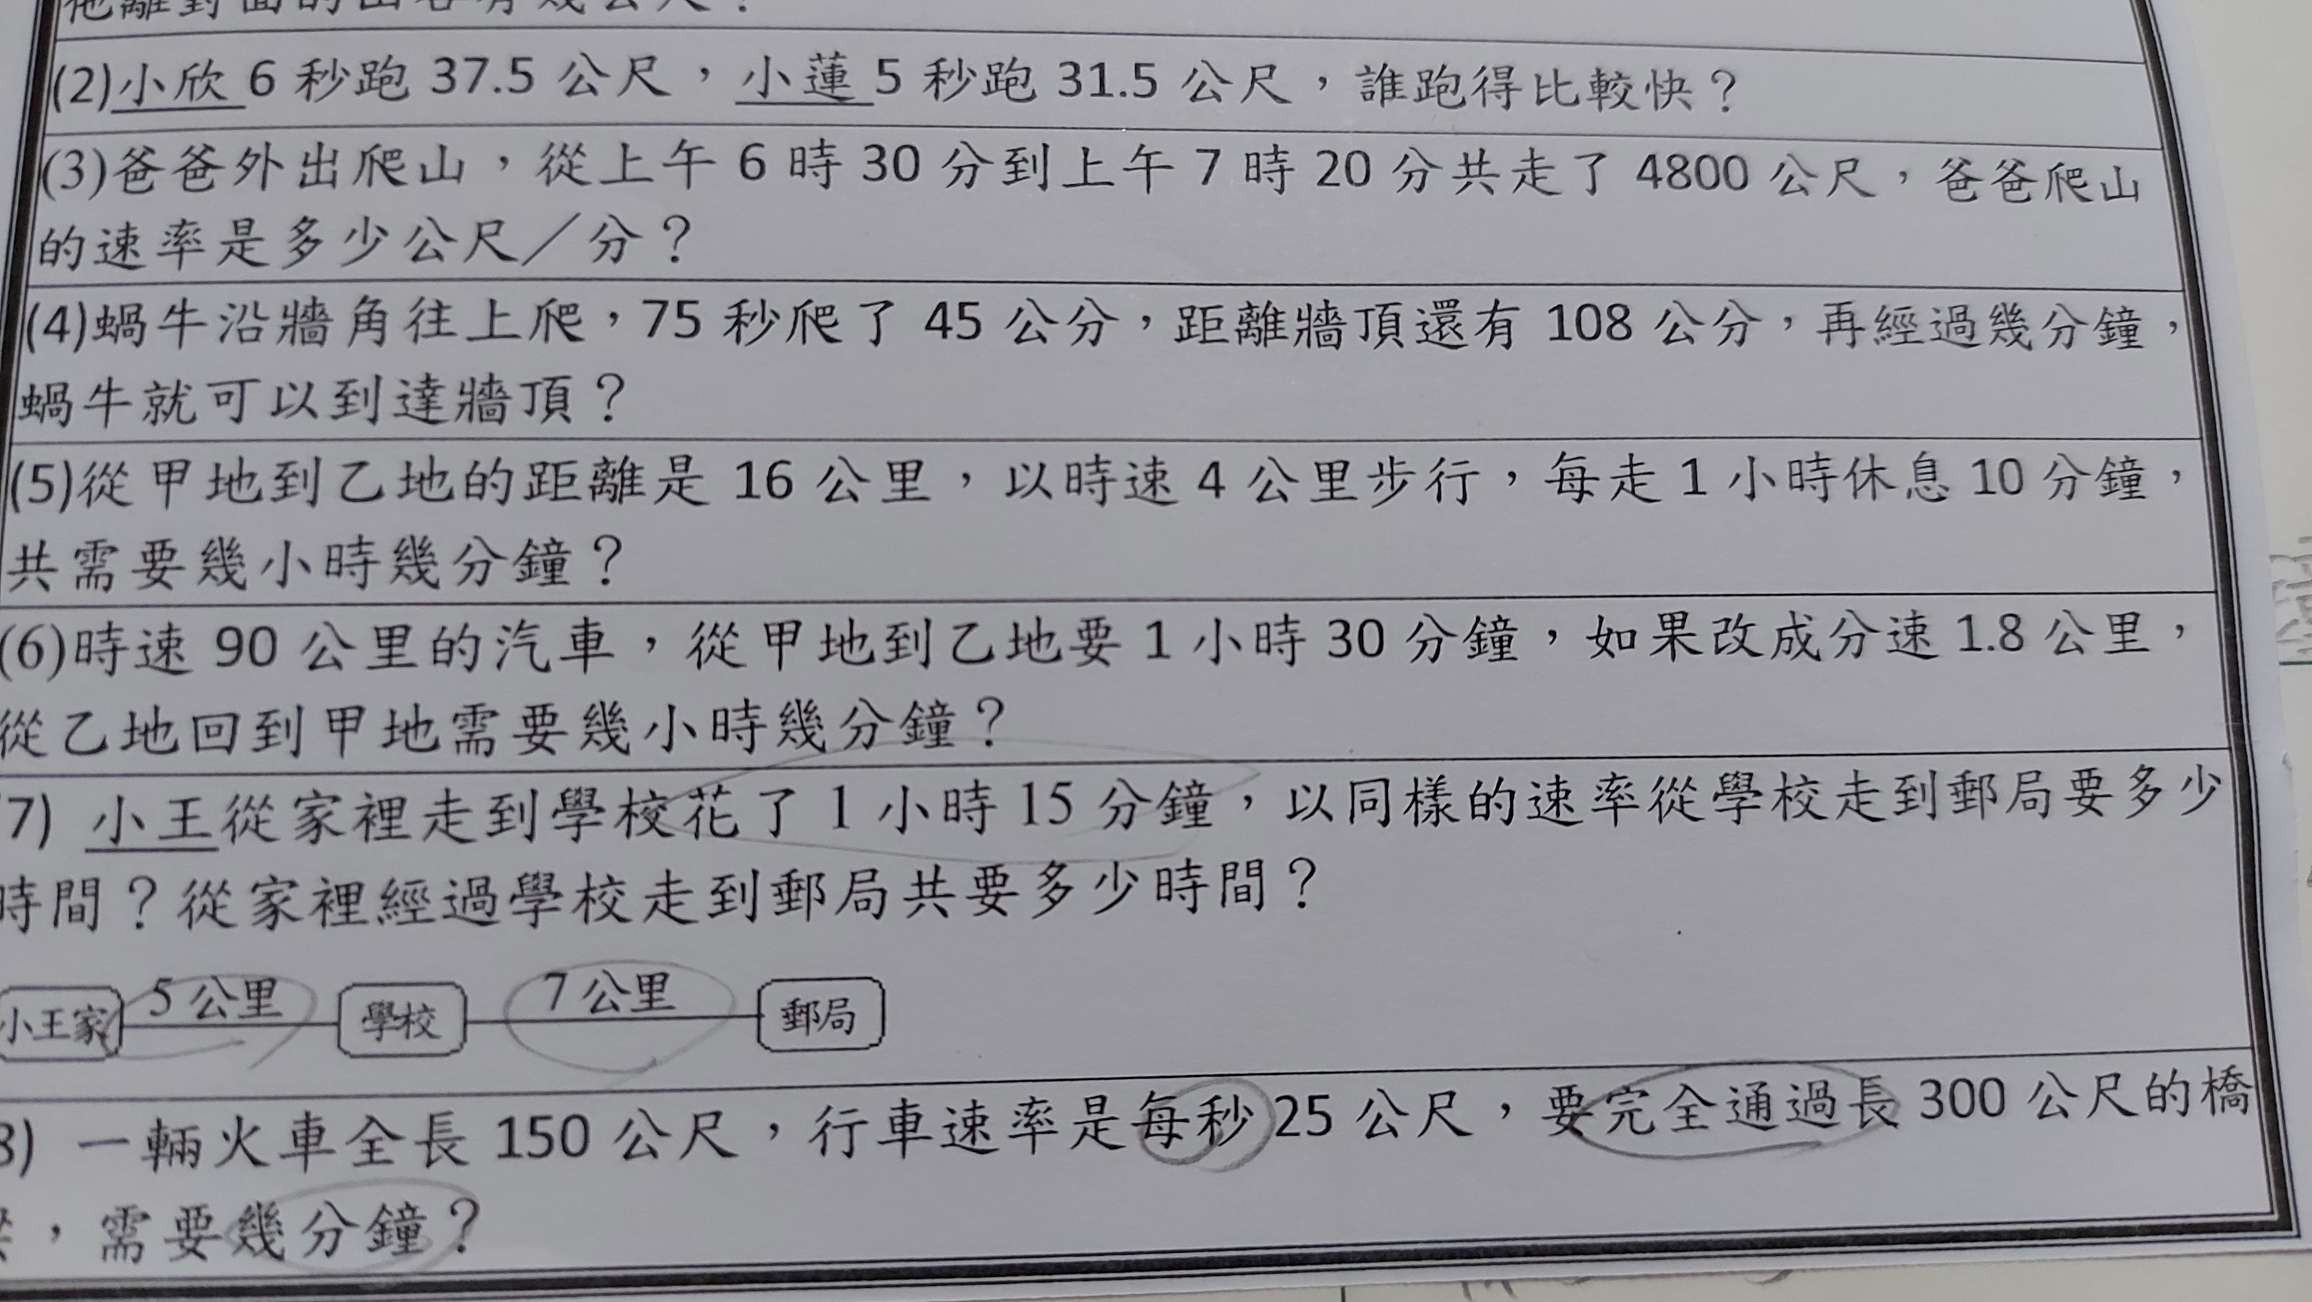 (2)小欣 6 秒跑 37.5 公尺，小蓮 5 秒跑 31.5 公尺，誰跑得比較快？
(3)爸爸外出爬山，從上午 6 時 30 分到上午 7 時 20 分共走了 4800 公尺，爸爸爬山
的速率是多少公尺／分？
(4)蝸牛沿牆角往上爬，75 秒爬了 45 公分，距離牆頂還有 108 公分，再經過幾分鐘，
蝸牛就可以到達牆頂？
(5)從甲地到乙地的距離是 16 公里，以時速 4 公里步行，每走 1 小時休息 10 分鐘，
共需要幾小時幾分鐘？
(6)時速 90 公里的汽車，從甲地到乙地要 1 小時 30 分鐘，如果改成分速 1.8 公里，
從乙地回到甲地需要幾小時幾分鐘？
7) 小王從家裡走到學校花了 1 小時 15 分鐘，以同樣的速率從學校走到郵局要多少
時間？從家裡經過學校走到郵局共要多少時間？
小王家 5 公里 學校 7 公里 郵局
8) 一輛火車全長 150 公尺，行車速率是每秒 25 公尺，要完全通過長 300 公尺的橋
，需要幾分鐘？